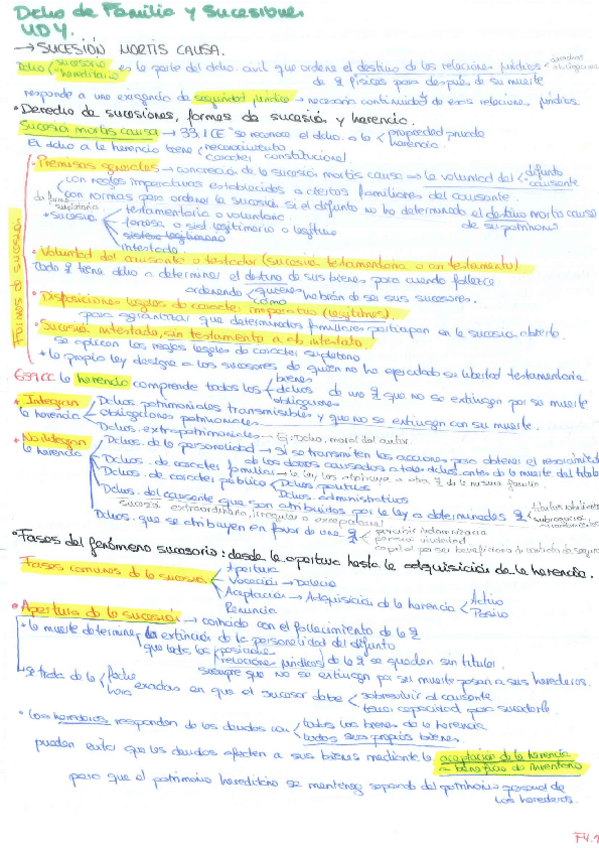 Dcho de Familia y Sucesiones
UD4.
→ SUCESIÓN MORTIS CAUSA.
Dcho sucesorio hereditario es la parte del dcho. civil que ordena el destino de las relaciones jurídicas derechos obligaciones
de físicas para después de su muerte
responde a una exigencia de seguridad jurídica → necesaria continuidad de esas relaciones jurídicas.
• Derecho de sucesiones, formas de sucesión y herencia.
Sucesión mortis causa → 33.1 CE "se reconoce el dcho. a la propiedad privada
herencia.
El dcho a la herencia tiene reconocimiento
caracter constitucional.
Formas de sucesión
• Premisas generales → concreción de la sucesión mortis causa → la voluntad del difunto
causante
con reglas imperativas establecidas a ciertos familiares del causante.
con normas para ordenar la sucesión si el difunto no ha determinado el destino mortis causa
de su patrimonio
• sucesión testamentaria o voluntaria.
forzosa o sist. legitimario o legítima
sistema legitimario
intestada
• Voluntad del causante o testador (sucesión testamentaria o con testamento)
Toda tiene dcho a determinar el destino de sus bienes para cuando fallezca
ordenando quienes
como habrán de ser sus sucesores.
• Disposiciones legales de caracter imperativo (legítimas).
para garantizar que determinados familiares participan en la sucesión abierta.
• Sucesión intestada, sin testamento o ab intestato
se aplican las reglas legales de caracter supletorio
• la propia ley designa a los sucesores de quien no ha ejercitado su libertad testamentaria.
659 CC la herencia comprende todos los bienes
dchos
obligaciones de una que no se extingan por su muerte
• Integran la herencia Dchos patrimoniales transmisibles
Obligaciones patrimoniales y que no se extinguen con su muerte.
Dchos. extrapatrimoniales → Ej: Dcho. moral del autor.
• No integran la herencia Dchos. de la personalidad → sí se transmiten las acciones para obtener el resarcimiento
de los daños causados a tales dchos. antes de la muerte del titular
Dchos. de caracter familiar → la ley los atribuye a otra de la misma familia.
Dchos. de caracter público Dchos políticos
Dchos. administrativos
Dchos. del causante que son atribuidos por la ley a determinadas
sucesión extraordinaria, irregular o excepcional
Dchos. que se atribuyen en favor de una indemnizacia
pensión viudedad
capital por ser beneficiario de contrato de seguro
• Fases del fenómeno sucesorio: desde la apertura hasta la adquisición de la herencia.
Fases comunes de la sucesión Apertura
Vocación → Delación
Aceptación → Adquisición de la herencia Activo
Pasivo
Renuncia
• Apertura de la sucesión → coincide con el fallecimiento de la
• la muerte determina la extinción de la personalidad del difunto
que todas las posiciones
relaciones jurídicas de la se queden sin titular.
siempre que no se extingan por su muerte pasan a sus herederos.
se trata de la fecha
hora exactas en que el sucesor debe sobrevivir al causante
tener capacidad para sucederle.
• Los herederos responden de las deudas con todos los bienes de la herencia
todos sus propios bienes
pueden evitar que las deudas afecten a sus bienes mediante la aceptación de la herencia
a beneficio de inventario
para que el patrimonio hereditario se mantenga separado del patrimonio personal de
los herederos.
F4.1